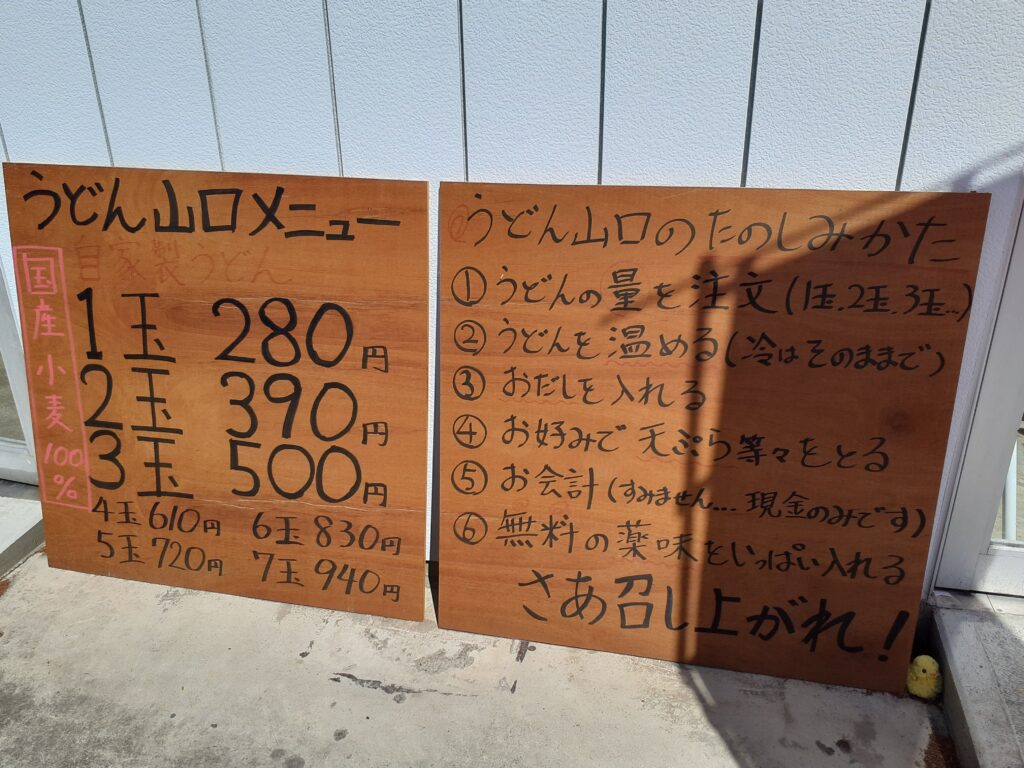 うどん山口メニュー
自家製うどん
国産小麦100%
1玉 280円
2玉 390円
3玉 500円
4玉610円 6玉830円
5玉720円 7玉940円
うどん山口のたのしみかた
①うどんの量を注文(1玉.2玉.3玉..)
②うどんを温める(冷はそのままで)
③おだしを入れる
④お好みで天ぷら等々をとる
⑤お会計(すみません...現金のみです)
⑥無料の薬味をいっぱい入れる
さあ召し上がれ!